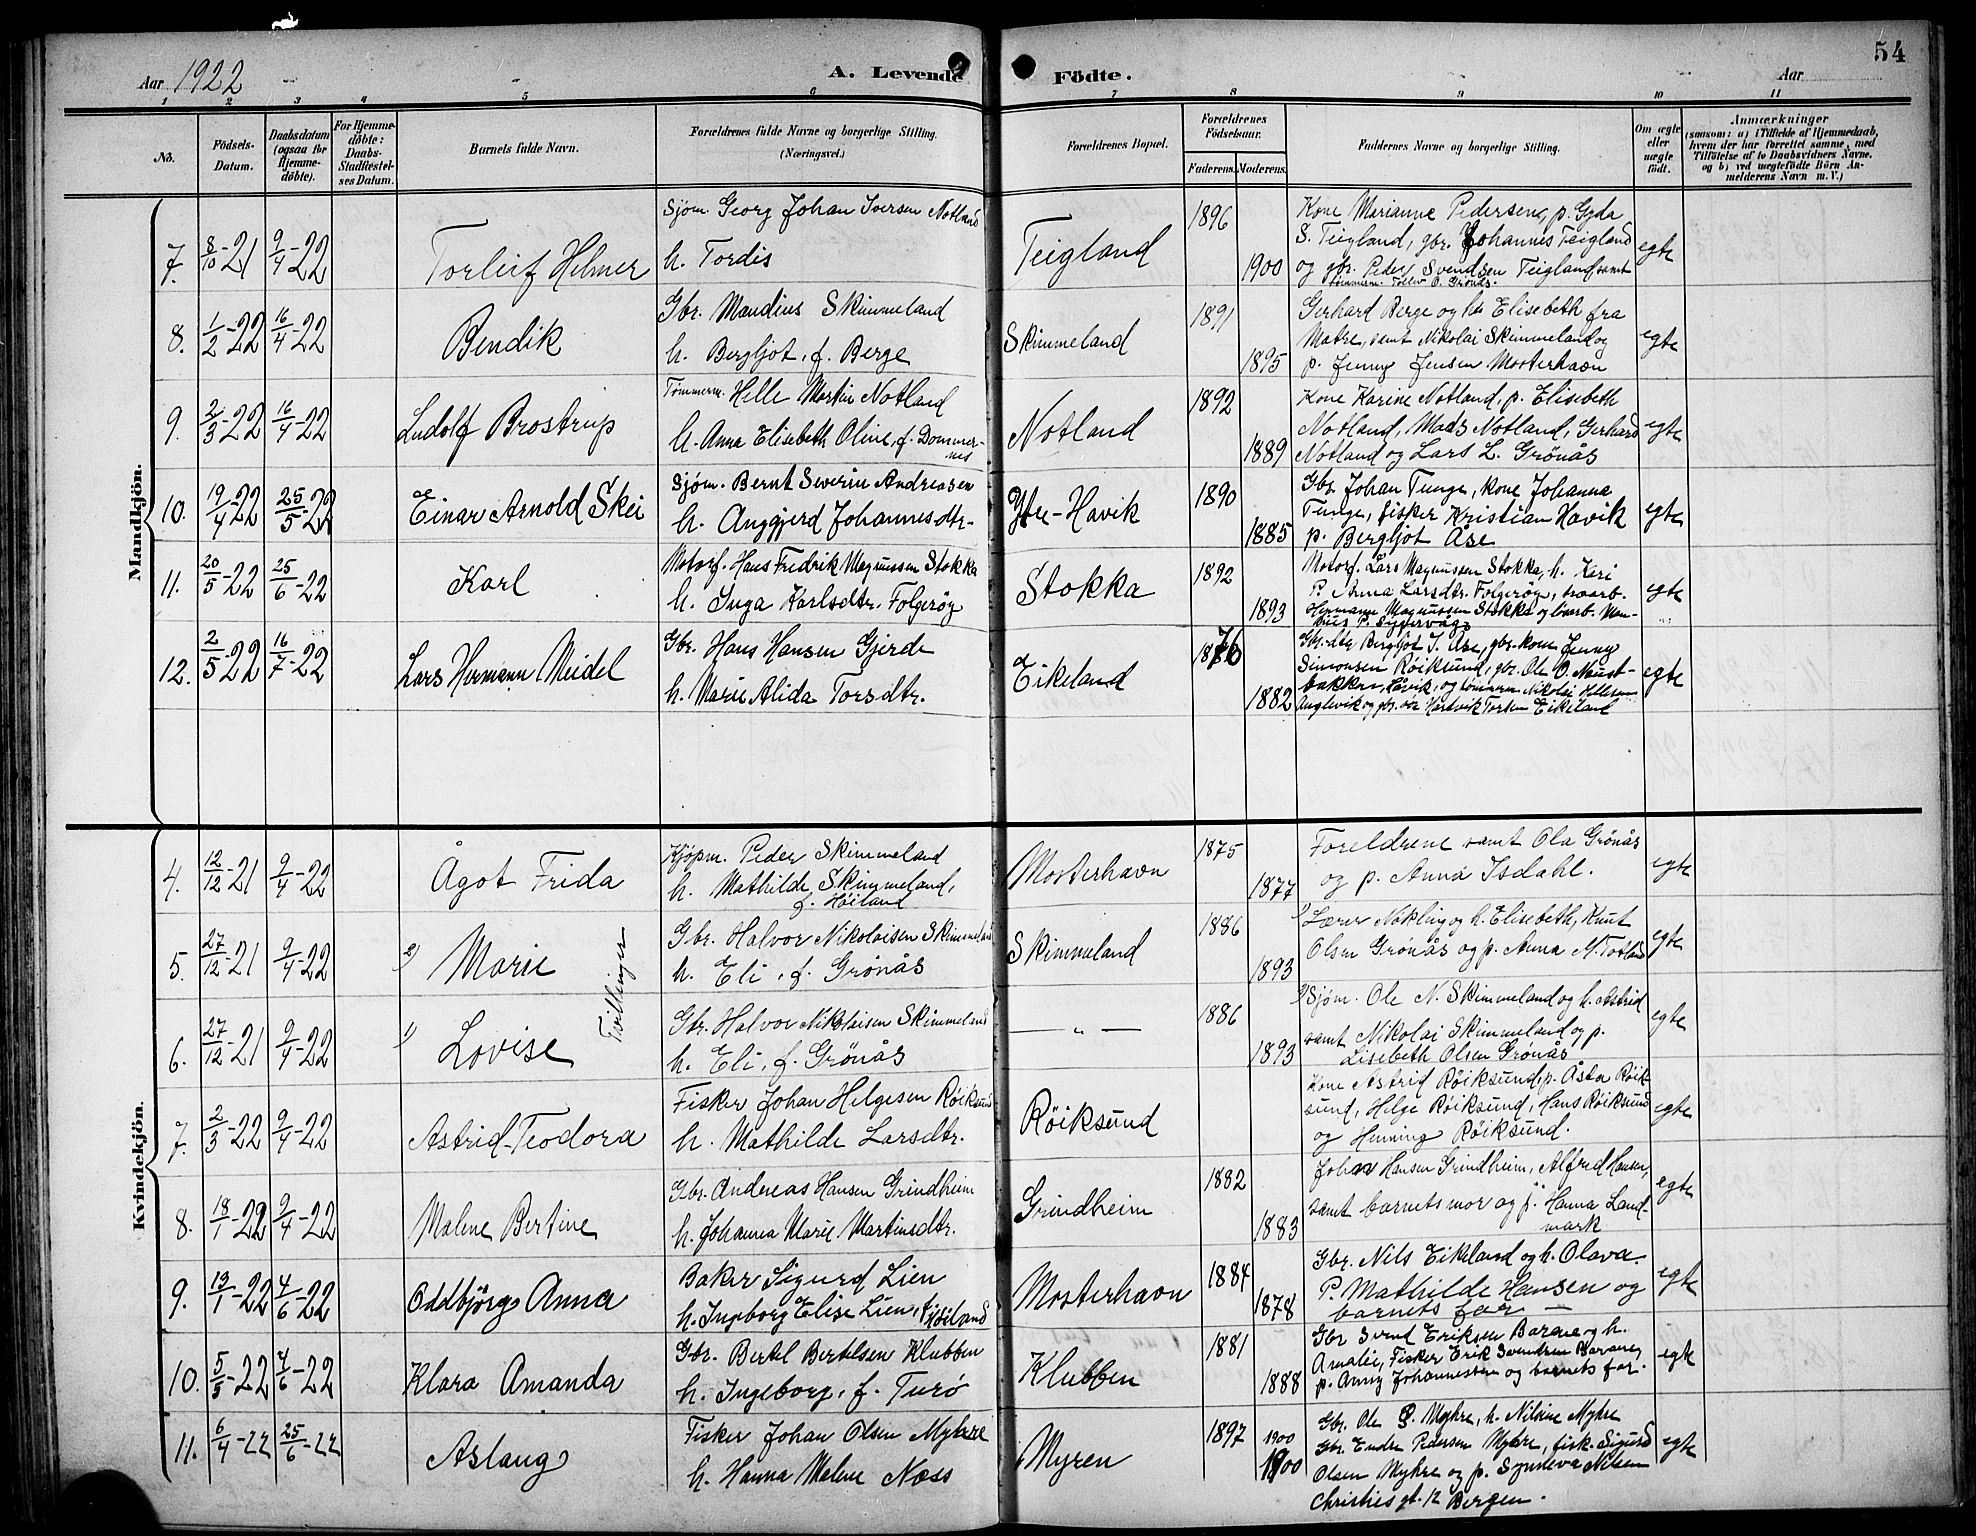 54
Aar 1922
A. Levende Födte.
Aar
1 2 3 4 5 6 7 8 9 10 11
No.
Födsels-Datum.
Daabsdatum (ogsaa for Hjemme-döbte).
For Hjemme-döbte: Daabs-Stadfæstel-ses Datum.
Barnets fulde Navn.
Forældrenes fulde Navne og borgerlige Stilling. (Næringsvei.)
Forældrenes Bopæl.
Forældrenes Födselsaar.
Faderens. Moderens.
Faddernes Navne og borgerlige Stilling.
Om ægte eller uægte födt.
Anmærkninger
(saasom: a) i Tilfælde af Hjemmedaab, hvem der har forrettet samme, med Tilföielse af to Daabsvidners Navne. og b) ved uægtefödte Börn An-melderens Navn m. V.)
Mandkjön.
7. 8/10-21 9/4-22 Torleif Helmer
Sjøm. Georg Johan Iversen Notland
h. Tordis
Teigland
1896
1900
Kone Marianne Pedersen, p. Gyda
S. Teigland, gbr. Johannes Teigland
og gbr. Peder Svendsen Teigland samt
tømmerm. Tollev O. Grønås.
egte
8. 1/2-22 16/4-22 Bendik
Gbr. Mandius Skimmeland
h. Bergljot, f. Berge
Skimmeland
1891
1895
Gerhard Berge og h. Elisebeth fra
Matre, samt Nikolai Skimmeland og
p. Jenny Jensen Mosterhavn
egte
9. 2/3-22 16/4-22 Ludolf Brostrup
Tømmerm. Helle Martin Notland
h. Anna Elisebeth Oline, f. Dommer-
nes
Notland
1892
1889
Kone Karine Notland, p. Elisebeth
Notland, Mads Notland, Gerhard
Notland og Lars L. Grönås
egte
10. 19/4-22 25/5-22 Einar Arnold Skei
Sjøm. Bernt Severin Andreasen
h. Anggjerd Johannesdtr.
Ytre-Havik
1890
1885
Gbr. Johan Tunge, kone Johanna
Tunge, fisker Kristian Havik
p. Bergljot Åse
egte
11. 20/5-22 25/6-22 Karl
Motorf. Hans Fredrik Magnussen Stokka
h. Inga Karlsdtr. Folgerøy
Stokka
1892
1893
Motorf. Lars Magnussen Stokka, h. Kari
P. Anna Larsdtr. Folgerøy
Hermann Magnussen Stokka og
egte
12. 2/5-22 16/7-22 Lars Hermann Meidel
Gbr. Hans Hansen Gjerde
h. Marie Alida Torsdtr.
Eikeland
1876
1882
Gbr. dtr. Bergljot J. Åse, gbr. kone Jenny
Simonsen Røiksund, gbr. Ole O. Naust-
bakken, Håvik, og tømmerm. Nikolai Hillesen
Anglevik og gbr. søn Hartvik Torsen Eikeland
egte
Kvindekjön.
4. 12/12-21 9/4-22 Ågot Frida
Kjöpm. Peder Skimmeland
h. Mathilde Skimmeland,
f. Høiland
Mosterhavn
1875
1877
Foreldrene samt Ola Grönås
og p. Anna Isdahl.
egte
5. 27/12-21 9/4-22 2) Marie
Tvillinger
Gbr. Halvor Nikolaisen Skimmeland
h. Eli, f. Grönås
Skimmeland
1886
1893
1) Lærer Nökling og h. Elisebeth, Knut
Olsen Grönås og p. Anna N. Totland
egte
6. 27/12-21 9/4-22 1) Lovise
Gbr. Halvor Nikolaisen Skimmeland
h. Eli, f. Grönås
— " —
1886
1893
2) Sjøm. Ole N. Skimmeland og h. Astrid
samt Nikolai Skimmeland og p.
Lisebeth Olsen Grønås
egte
7. 2/3-22 9/4-22 Astrid Teodora
Fisker Johan Helgesen Röiksund
h. Mathilde Larsdtr.
Röiksund
Kone Astrid Røiksund, p. Åsta Röik-
sund, Helge Röiksund, Hans Röiksund
og Henning Röiksund.
egte
8. 18/1-22 9/4-22 Malene Bertine
Gbr. Andreas Hansen Grindheim
h. Johanna Marie Martinsdtr.
Grindheim
1882
1883
Johan Hansen Grindheim, Alfred Hansen,
samt barnets mor og p. Hanna Land-
mark
egte
9. 19/1-22 4/6-22 Oddbjörg Anna
Baker Sigurd Lien
h. Ingeborg Elise Lien, f. Høiland
Mosterhavn
1884
1878
Gbr. Nils Eikeland og h. Olava.
P. Mathilde Hansen og
barnets far —
egte
10. 5/5-22 4/6-22 Klara Amanda
Gbr. Bertel Bertelsen Klubben
h. Ingeborg, f. Turö
Klubben
1881
1888
Gbr Svend Eriksen Barane og h.
Amalie, Fisker Erik Svendsen Barane,
p. Anny Johannessen og barnets far.
egte
11. 6/4-22 25/6-22 Aslaug
Fisker Johan Olsen Myhre
h. Hanna Malene Næss
Myren
1897
1900
1900
Gbr. Ole P. Myhre, h. Nilsine Myhre
Gbr. Endre Pedersen Myhre, fisk. Sigurd
Olsen Myhre og p. Synneva Nilsen
Christiesgt. 12 Bergen.
egte